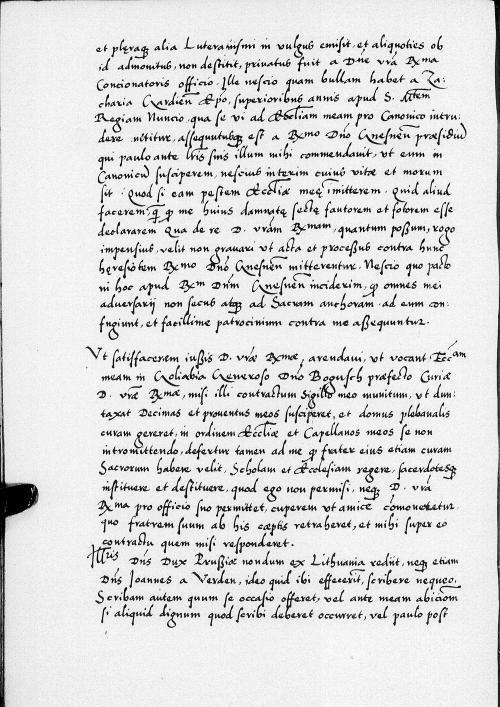 et pleraq₃ alia Luteranismi in vulgus emisit, et aliquoties ob
id admonitus, non destitit, privatus fuit a Dne vrā Rx̄ma
Concionatoris officio. Ille nescio quam bullam habet a Za-
charia Gardien̄ Ep̄o, superioribus annis apud S. M̄tem
Regiam Nuncio, qua se vi ad Eccl̄iam meam pro Canonico intru-
dere nititur, assequutusq₃ est a Rx̄mo Dn̄o Gnesnen̄ præsidiū
qui paulo ante lr̄is suis illum mihi commendavit, ut eum in
Canonicū susciperem, nescius interim cuius vitæ et morum
sit. Quod si eam pestem Eccl̄iæ meę imitterem, quid aliud
facerem, q̄ q̄ me huius damnatę sectę fautorem et fotorem esse
declararem. Qua de re D. vrām Rx̄mam, quantum possum, rogo
impensius, velit non gravari ut acta et processus contra hunc
hęreiotem Rx̄mo Dn̄o Gnesnen̄ mitterentur. Nescio quo pacto
ni hoc apud Rx̄m Dn̄m Gnesnen̄ inciderim, q̄ omnes mei
adversarij non secus atq₃ ad Sacram anchoram ad eum con-
fugiunt, et facillime patrocinium contra me assequuntur.
Vt satisfacerem iussis D. vræ Rx̄mæ, arendavi, ut vocant Ecc̄am
meam in Goliabia Generoso Dn̄o Bogusch præfecto Curiæ
D. vræ Rx̄mæ, misi illi contractum sigillo meo munitum, ut dun-
taxat Decimas et proventus meos susciperet, et domus plebanalis
curam gereret, in ordinem Eccl̄iæ et Capellanos meos se non
intromittendo, defertur tamen ad me q̄ frater eius etiam curam
Sacrorum habere velit, Scholam et Ecclesiam regere, sacerdotesq₃
instituere et destituere, quod ego non permisi, neq₃ D. vrā
Rx̄ma pro officio suo permittet, cuperem ut amice cōmoveretur
quo fratrem suum ab his cæptis retraheret, et mihi super eo
contractu quem misi responderet.
Illr̄is Dn̄s Dux Prussiæ nondum ex Lithuania redijt, neq₃ etiam
Dn̄s Joannes a Werden, ideo quid ibi effecerit, scribere nequeo.
Scribam autem quum se occasio offeret, vel ante meam abicion̄
si aliquid dignum quod scribi deberet occurret, vel paulo post